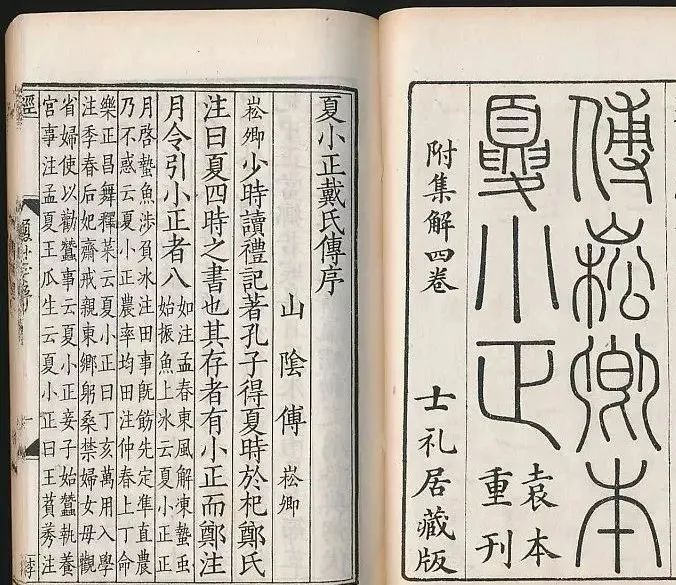 傅崧卿本
夏小正
袁本
重刊
附集解四卷
士礼居藏版
夏小正戴氏傳序
山陰傅崧卿
崧卿少時讀禮記著孔子得夏時於杞鄭氏
注曰夏四時之書也其存者有小正而鄭注
月令引小正者八
如注孟春東風解凍蟄䖝
始振魚上氷云夏小正正
月啓蟄魚陟負氷注田事旣飭先定準直農
乃不惑云夏小正農率均田注仲春上丁命
樂正昌舞釋菜云夏小正曰丁亥萬用入學
注季春后妃齋戒親東鄉躬桑禁婦女毋觀
省婦使以勸蠶事云夏小正妾子始蠶執養
宮事注孟夏王瓜生云夏小正曰王萯莠注